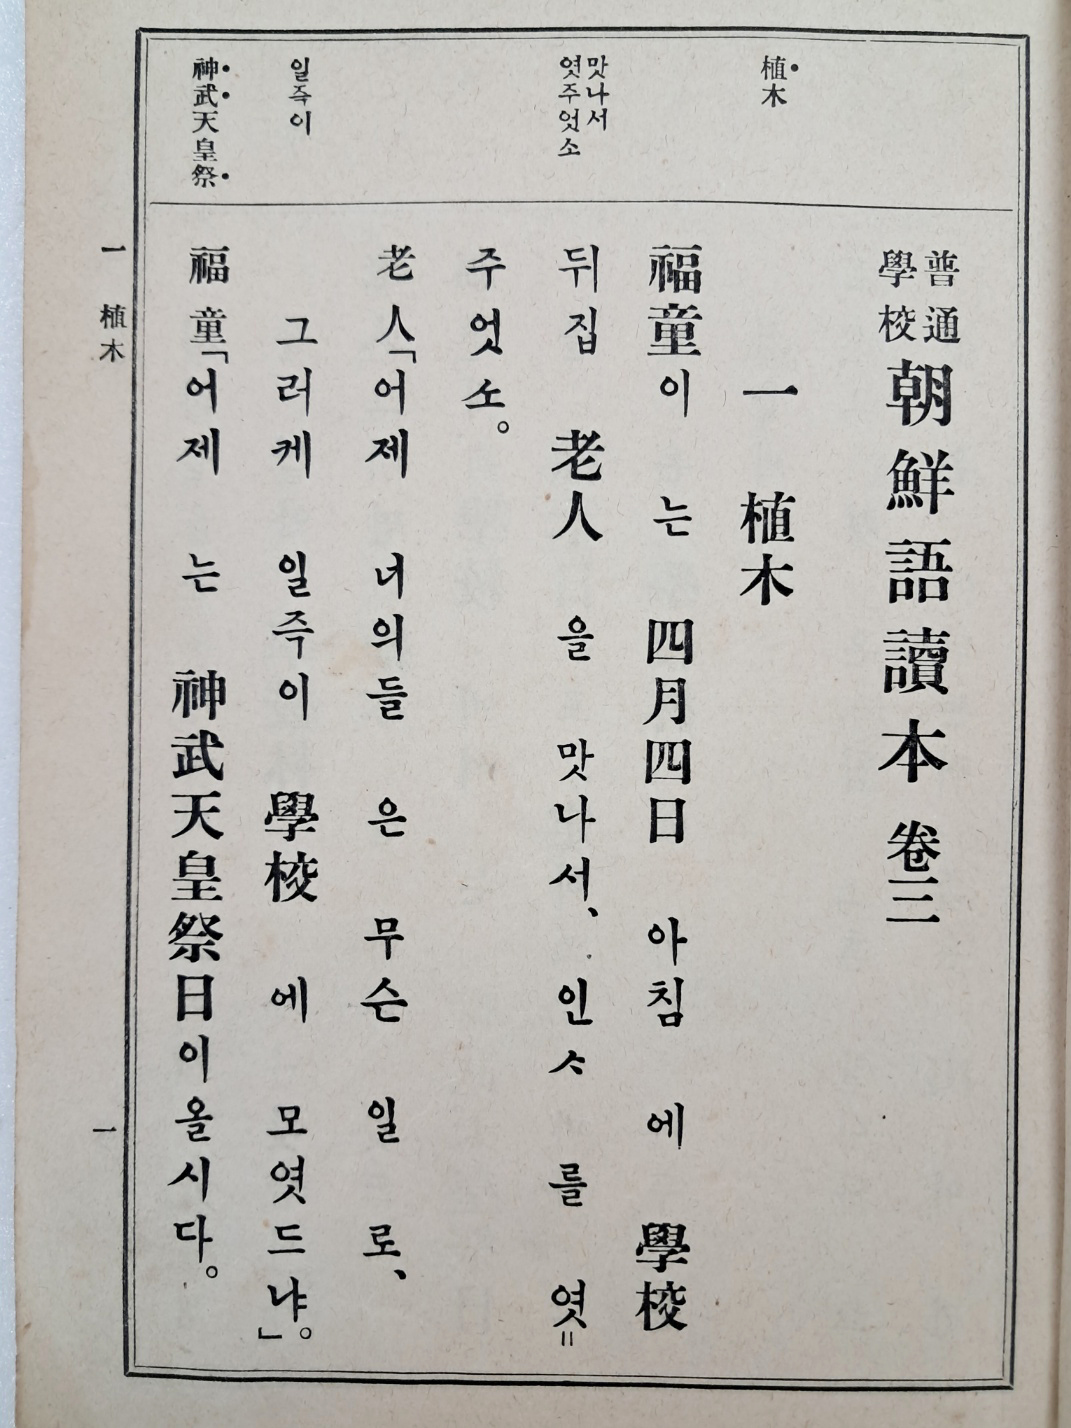 普通學校 朝鮮語讀本 卷三
一 植木
福童이 는 四月四日 아침 에 學校
뒤집 老人 을 맛나서、인ᄉᆞ 를 엿=
주엇소。
老人「어제 너의들 은 무슨 일 로、
그러케 일즉이 學校 에 모엿드냐。」
福童「어제 는 神武天皇祭日이올시다。
植木
맛나서
엿주엇소
일즉이
神武天皇祭
一 植木
一